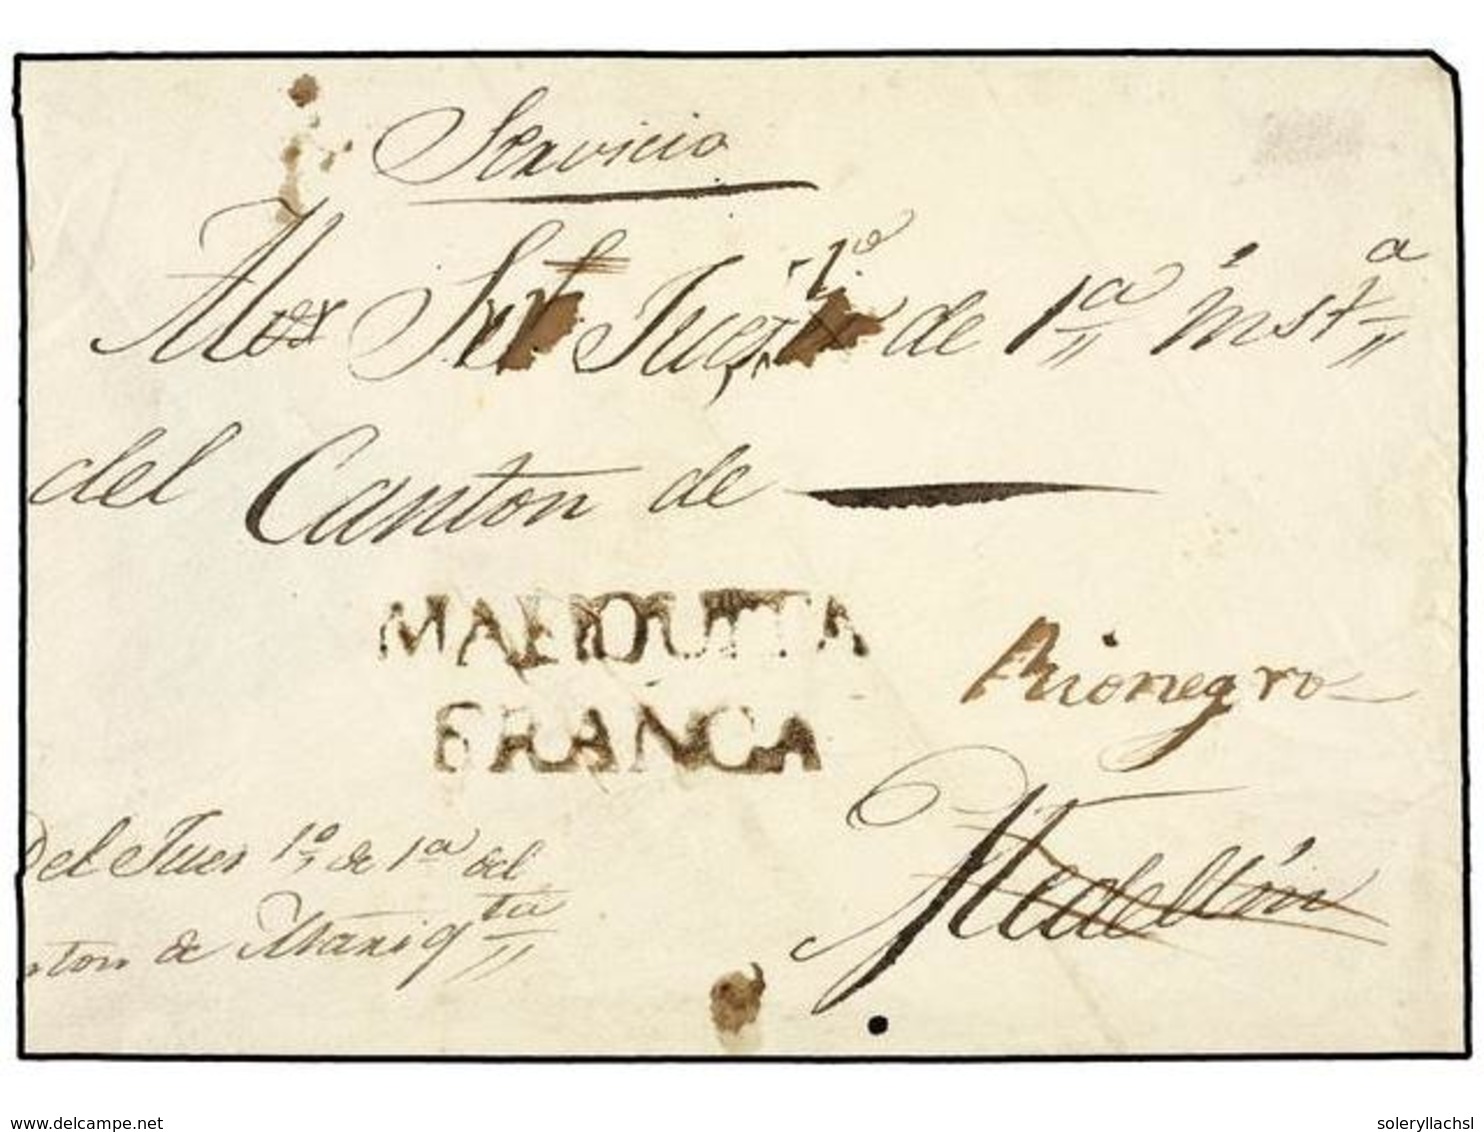 Servicio
Al Sr. Juez 1º de 1ª inst.ª
del Canton de
MARIQUITA
FRANCA
Rionegro
Medellín
Del Jues 1º de 1ª del
nton de Mariqta
www.delcampe.net
soleryllachsl